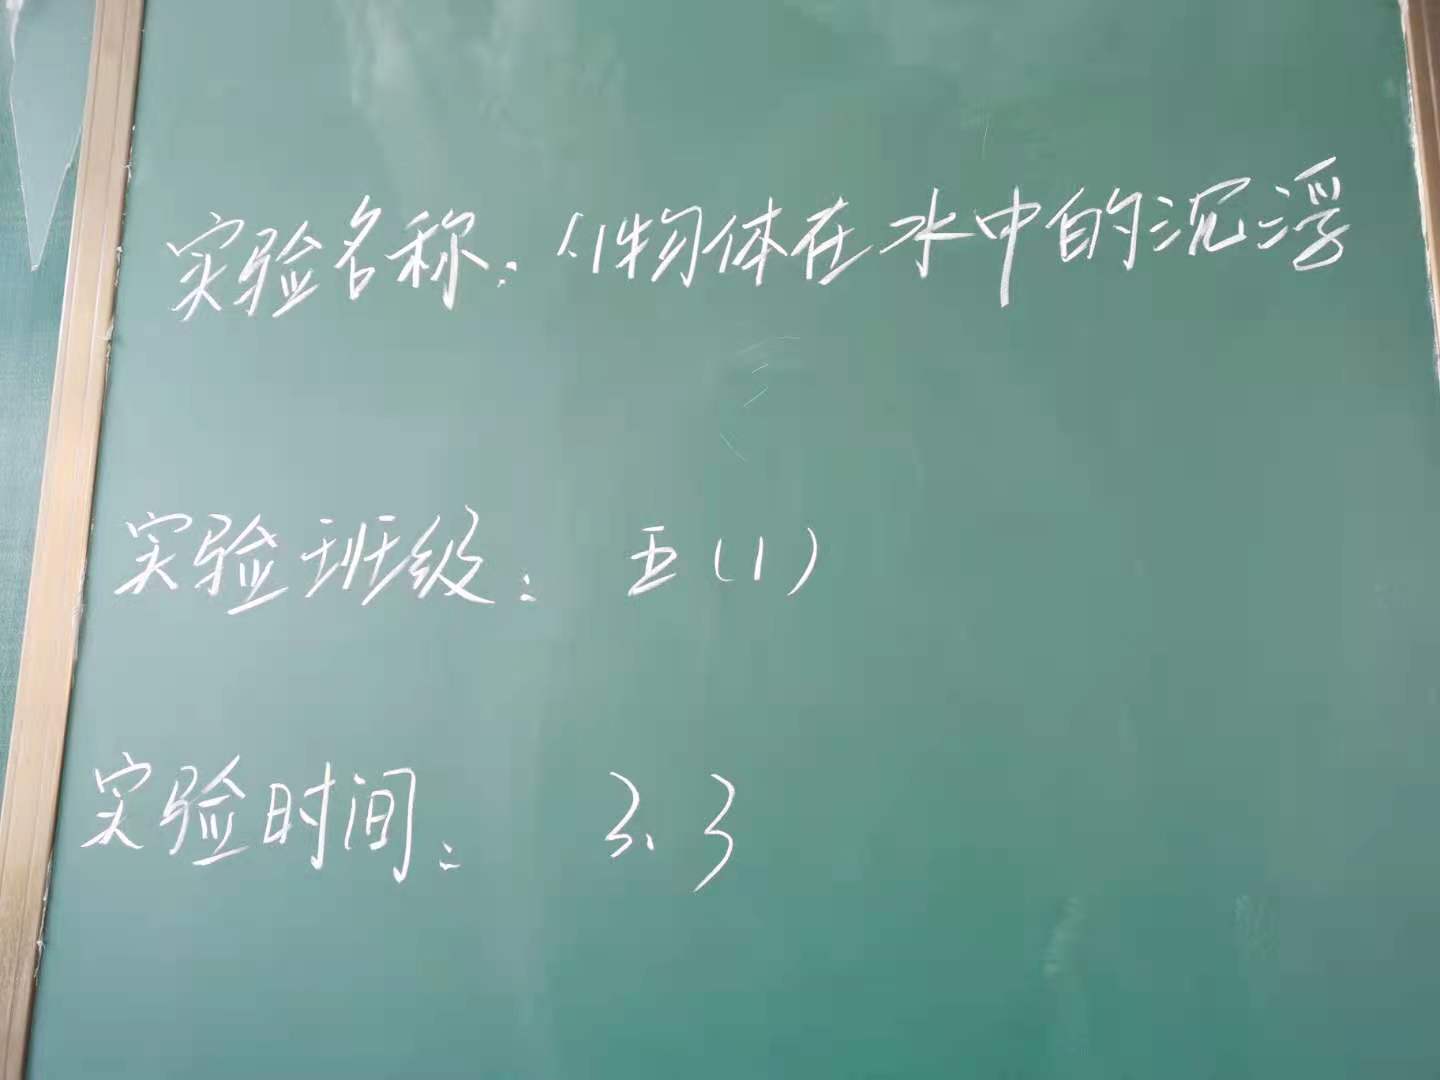 实验名称：小物体在水中的沉浮
实验班级：五(1)
实验时间：3.3